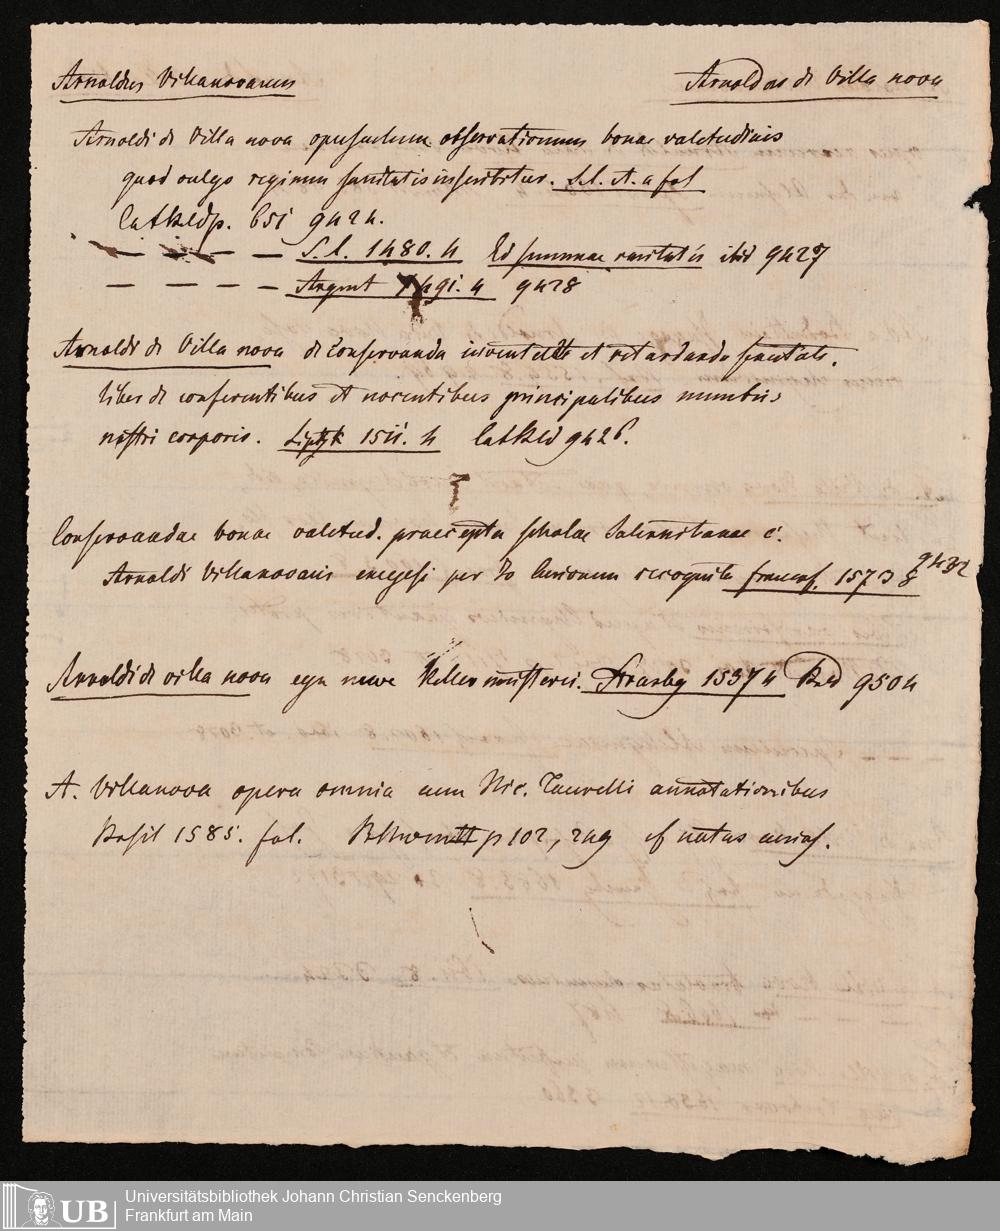 Arnoldus Villanovanus Arnoldus de Villa nova
Arnoldi de Villa nova opusculum observationum bonae valetudinis
quod vulgo regimen sanitatis inscribitur. S. l. et a fol
Cat Rldp. 651 9424.
— — — — S. l. 1480. 4 Ed summae raritatis ibid 9427
— — — — Argent 1491. 4 9428
Arnoldi de Villa nova de conservanda iuventute et retardanda senectute.
Liber de conferentibus et nocentibus principalibus membris
nostri corporis. Liptzk 1511. 4 Cat Rld 9426.
Conservandae bonae valetud. praecepta scholae Salernitanae c.
Arnoldi Villanovani exegesi per Jo Curionem recognita francof. 1573 8 9432
Arnoldi de villa nova eyn newe Kellermeisterei. Strasbg 1537 4 Rld 9504
A. Villanova opera omnia cum Nic. Taurelli annotationibus
Basil 1585. fol. p 102, 249 cf notas
Universitätsbibliothek Johann Christian Senckenberg
UB Frankfurt am Main